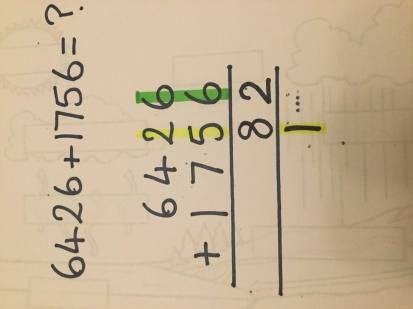 6426+1756=?
6426
+1756
82
1